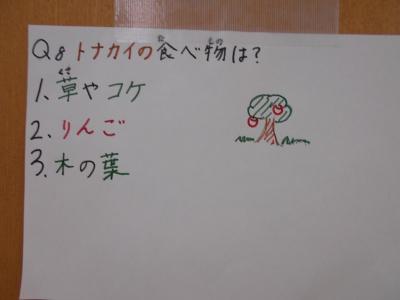 Q8 トナカイの食べ物は?
た もの
1. 草やコケ
くさ
2. りんご
3. 木の葉